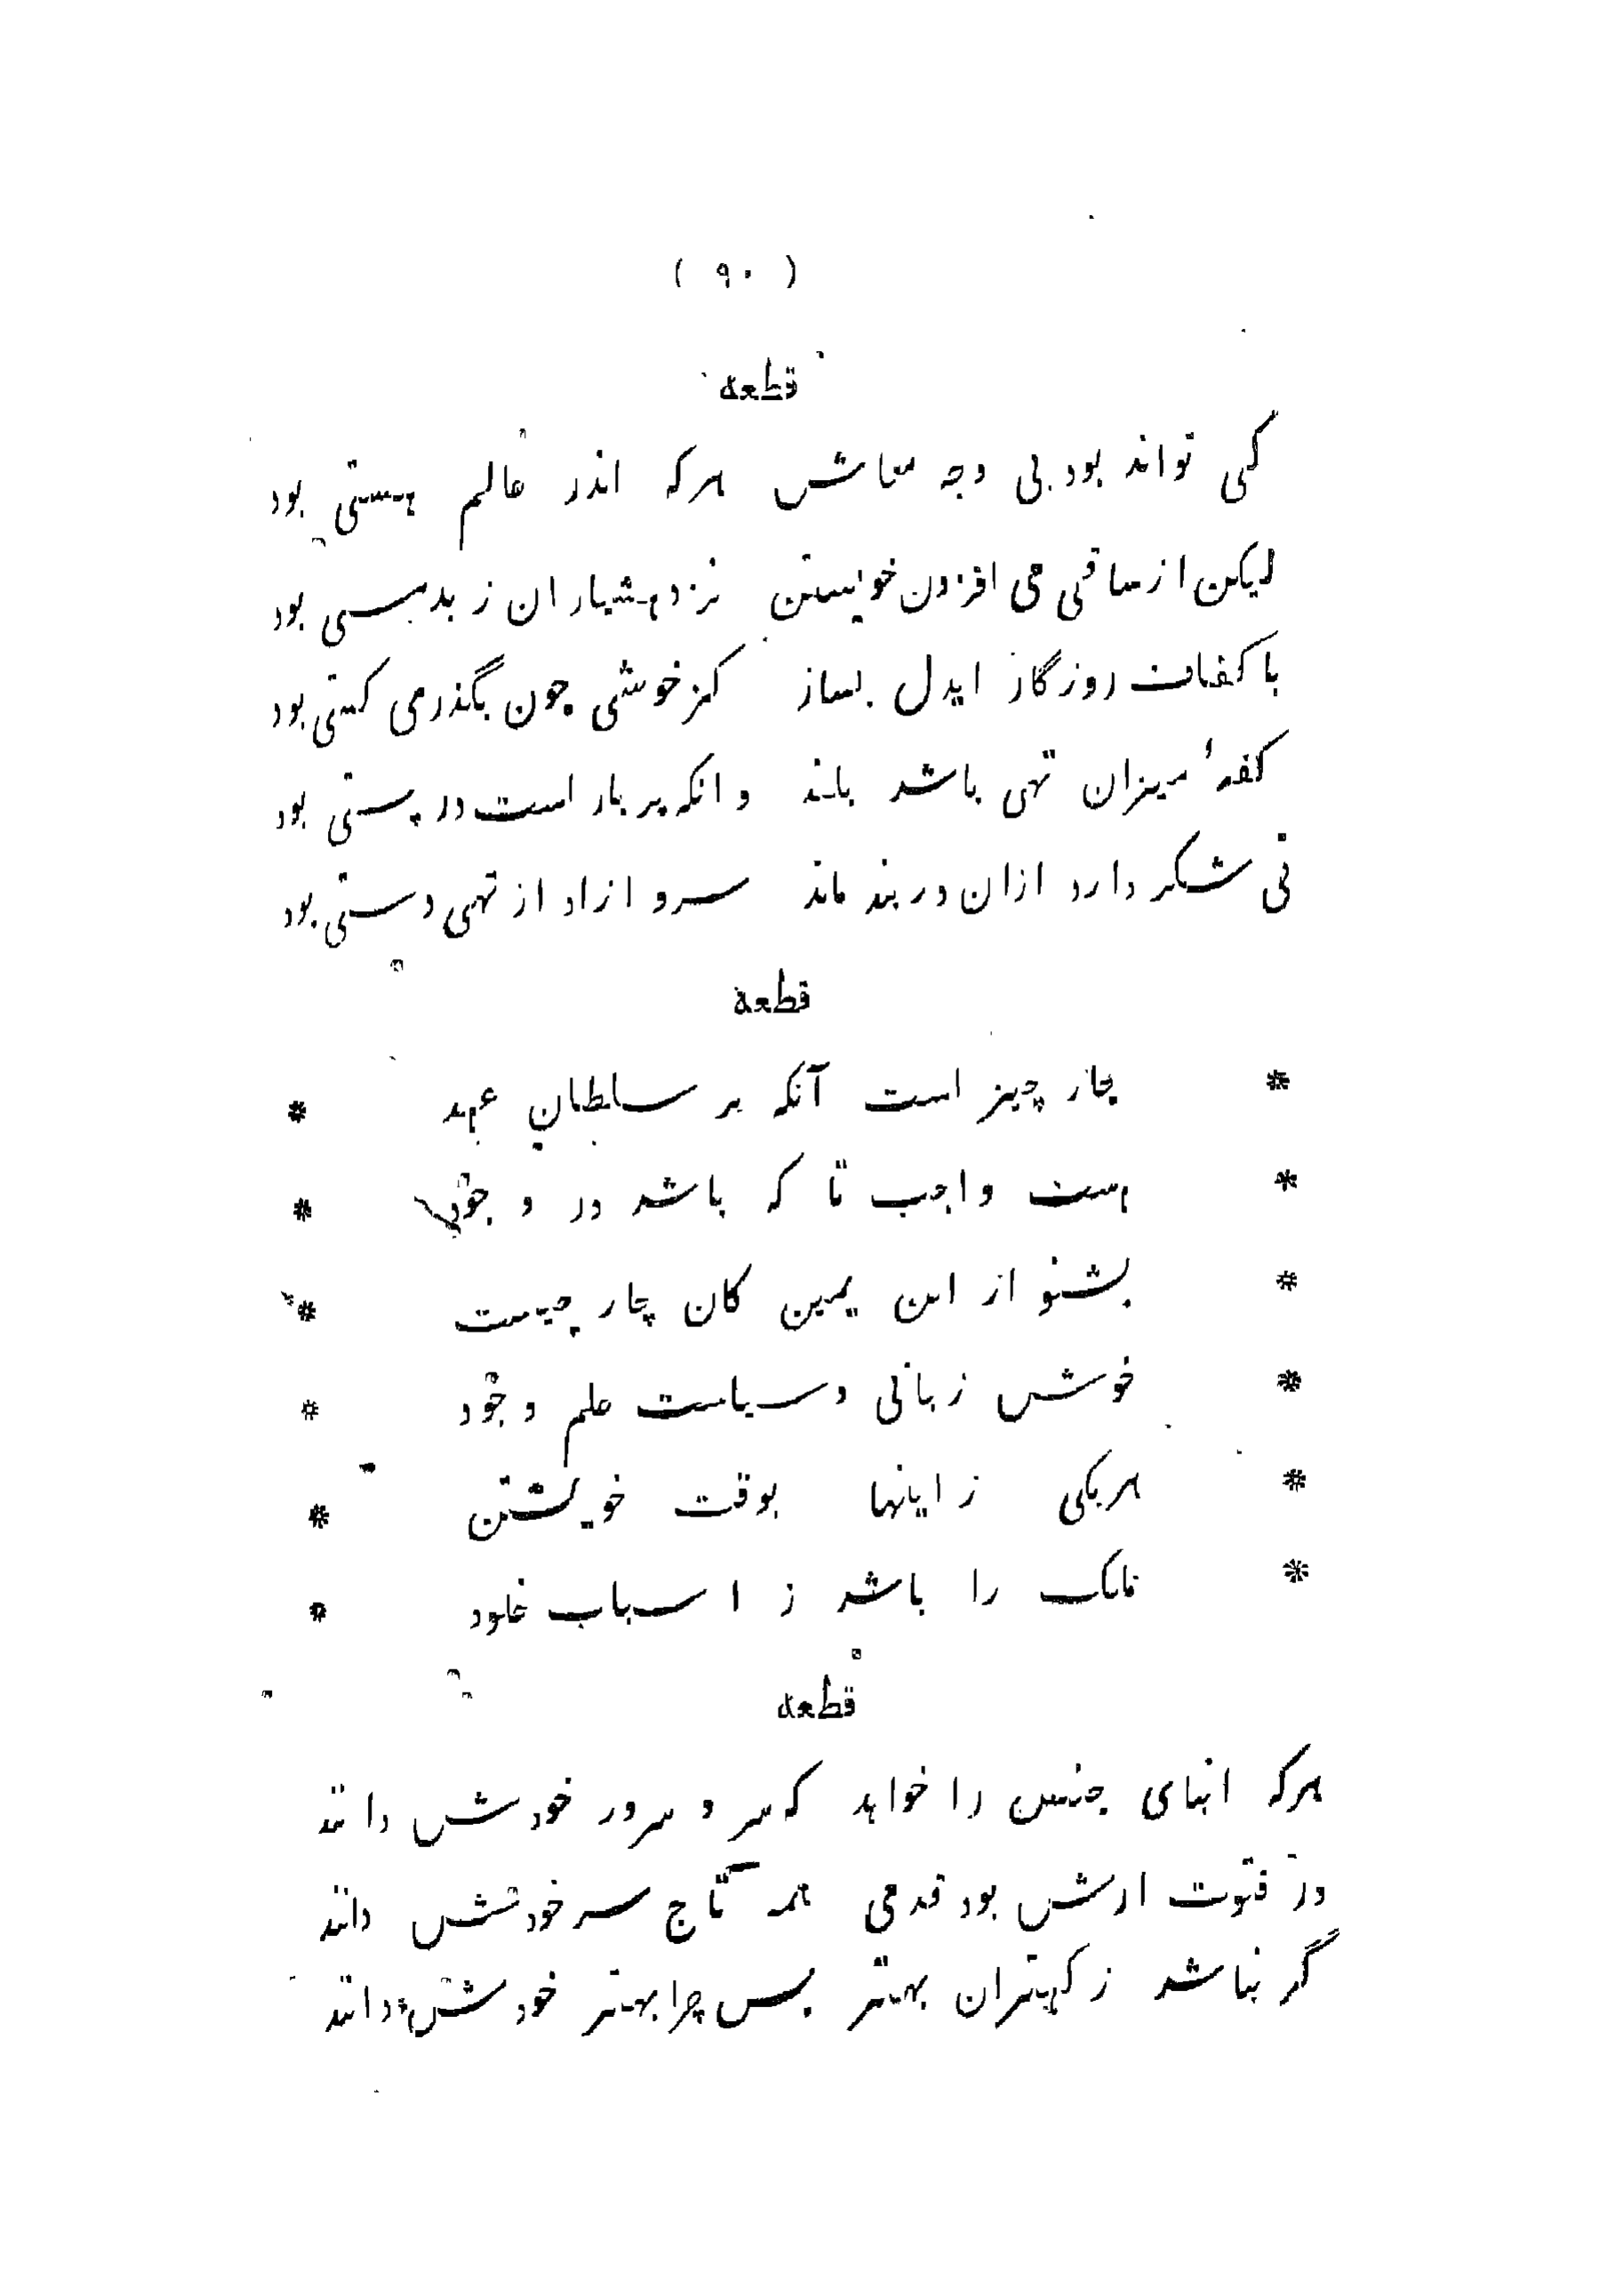 ( ۹۰ )
قطعه
کی تواند بود بی وجه معاش هرکه اندر عالم هستی بود
لیکن از ساقی می افزون خواستن نزد هشیاران ز بدمستی بود
با کفات روزگار ایدل بساز کز خوشی چون بگذرمی کستی بود
کفهٔ میزان تهی باشد بلند وانکه پر بار است در پستی بود
نی شکر دارد ازان در بند ماند سرو ازاد از تهی دستی بود
قطعة
* چار چیز است آنکه بر سلطان عهد *
* هست واجب تا که باشد در وجود *
* بشنو از ابن یمین کان چار چیست *
* خوش زبانی و سیاست علم و جود *
* هریکی زاینها بوقت خویشتن *
* ملک را باشد ز اسباب خلود *
قطعه
هرکه ابنای جنس را خواهد که سر و سرور خودش دانند
در فتوت ارش بود قدمی همه تاج سر خودش دانند
گر نباشد ز کهتران بهتر پس چرا بهتر خودش دانند